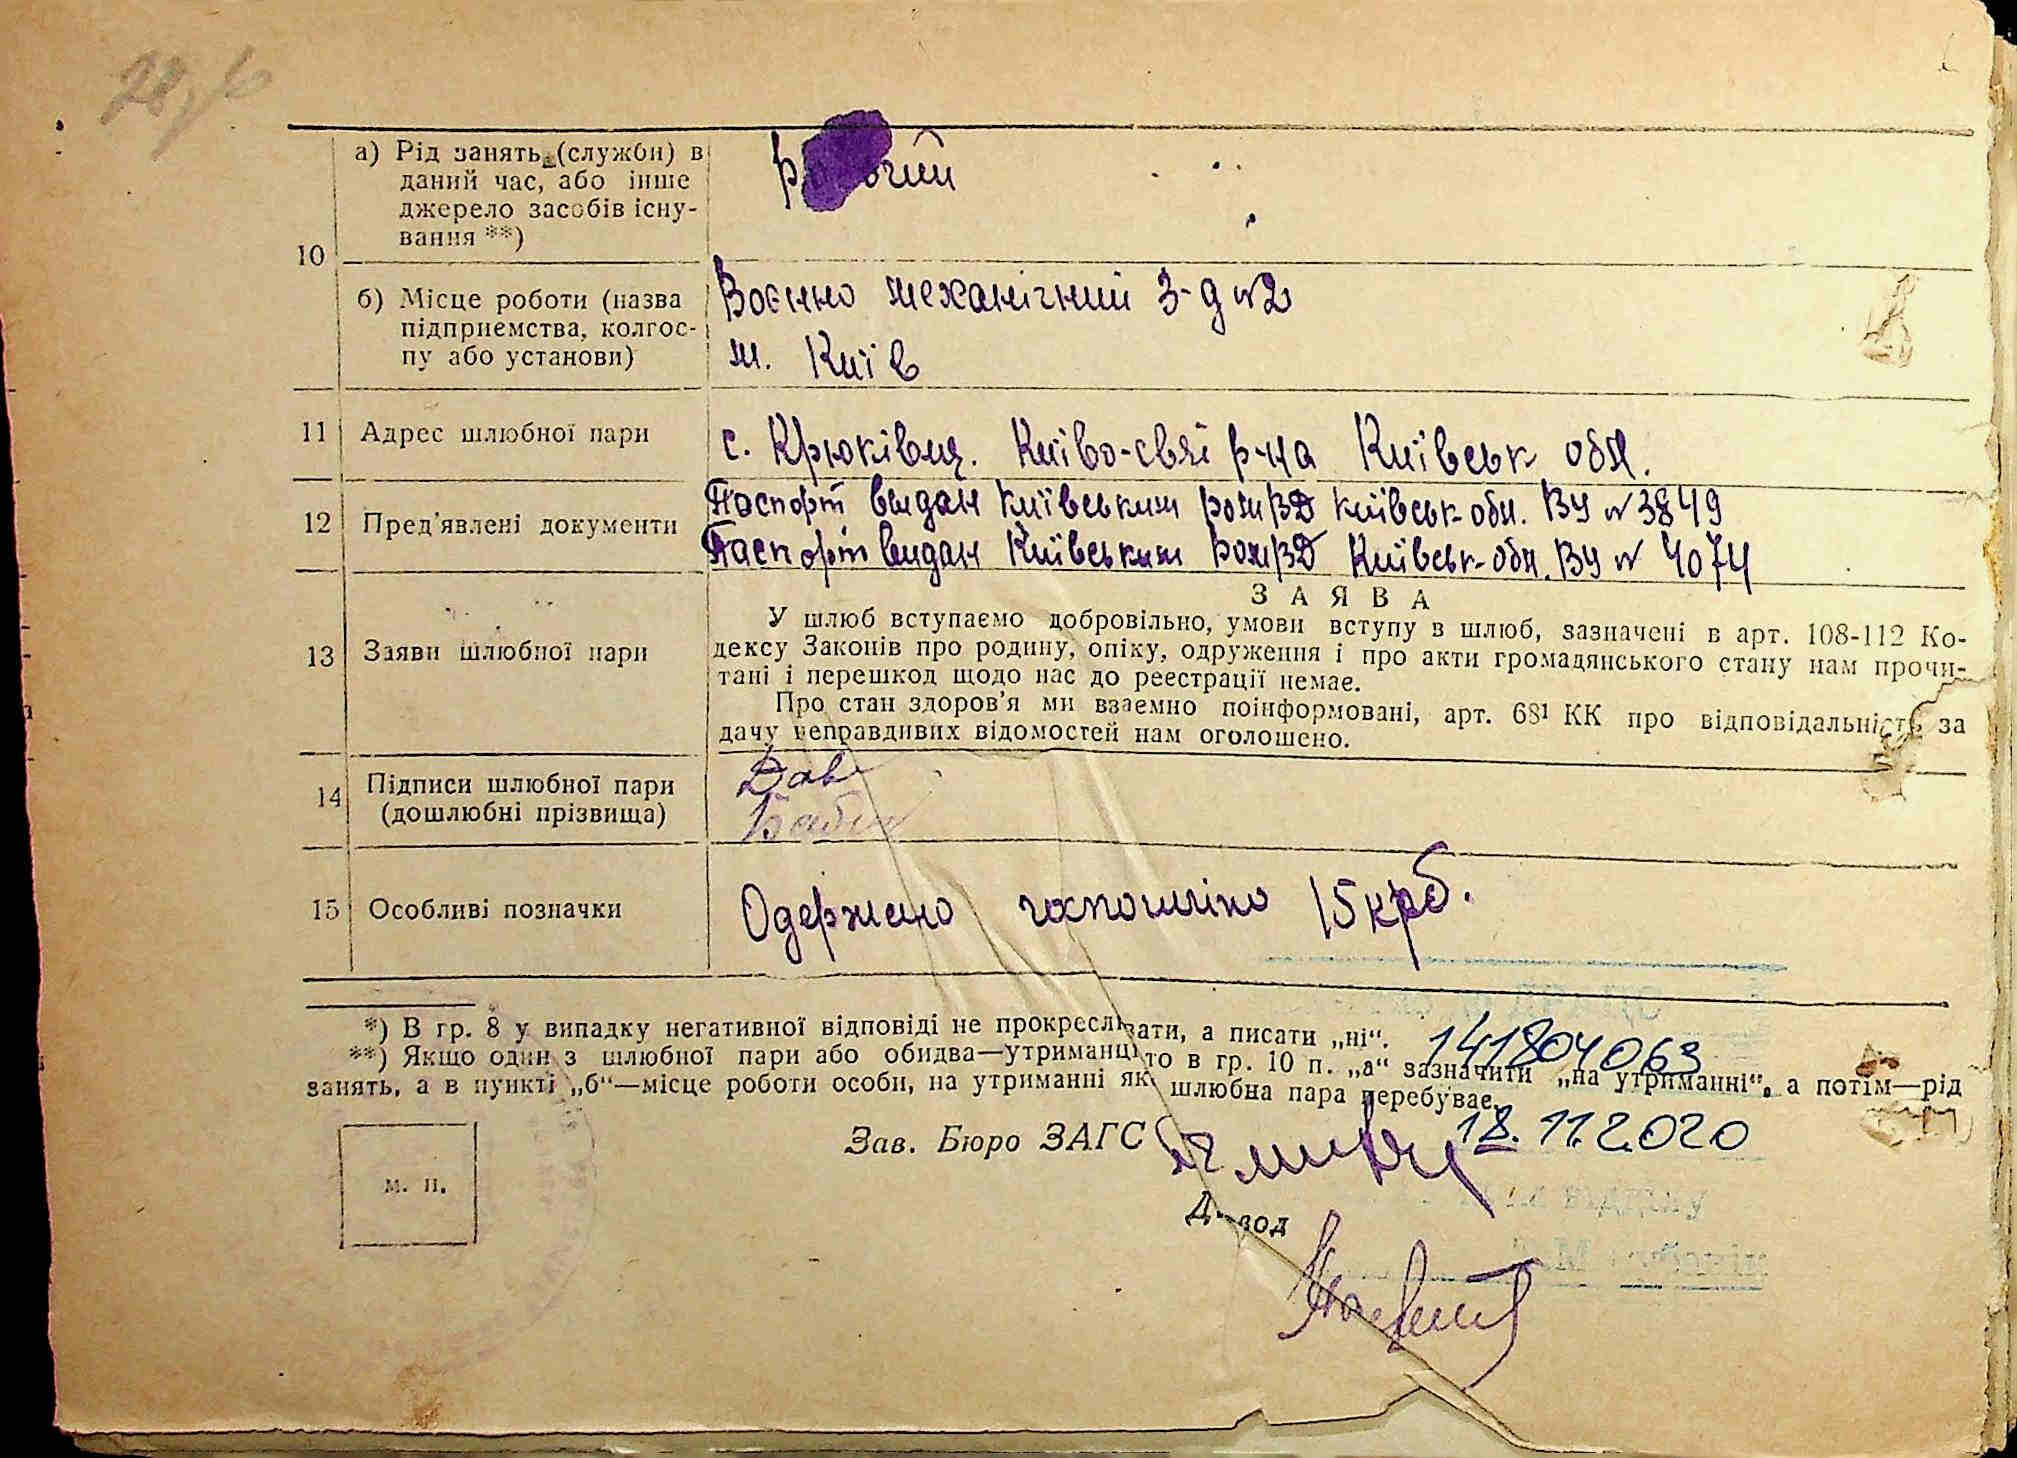 10
а) Рід занять (служби) в
даний час, або інше
джерело засобів існу-
вання **)
б) Місце роботи (назва
підприємства, колгос-
пу або установи)
Воєнно механічний з-д №2
м. Київ
11 Адрес шлюбної пари
с. Крюківщ. Києво-свят р-на Київськ обл.
12 Пред'явлені документи
Паспорт видан Київським РОМВД Київськ обл. ВУ № 3849
Паспорт видан Київським РОМВД Київськ-обл. ВУ № 4074
13 Заяви шлюбної пари
ЗАЯВА
У шлюб вступаємо добровільно, умови вступу в шлюб, зазначені в арт. 108-112 Ко-
дексу Законів про родину, опіку, одруження і про акти громадянського стану нам прочи-
тані і перешкод щодо нас до реєстрації немає.
Про стан здоров'я ми взаємно поінформовані, арт. 68¹ КК про відповідальність за
дачу неправдивих відомостей нам оголошено.
14 Підписи шлюбної пари
(дошлюбні прізвища)
15 Особливі позначки
Одержано 15 крб.
*) В гр. 8 у випадку негативної відповіді не прокреслювати, а писати „ні“.
141804063
**) Якщо один з шлюбної пари або обидва—утриманці то в гр. 10 п. „а“ зазначити „на утриманні“, а потім—рід
занять, а в пункті „б“—місце роботи особи, на утриманні як шлюбна пара перебуває.
Зав. Бюро ЗАГС
18.11.2020
м. п.
відділу